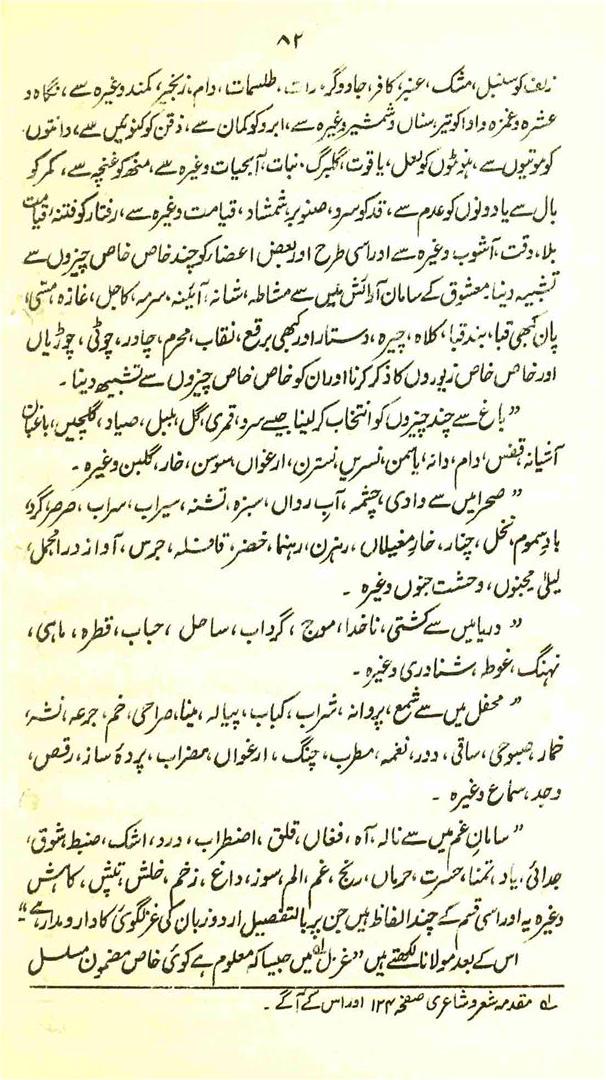 ۸۲
زلف کو سنبل، مشک، عنبر، کافر، جادوگر، رات، ظلمات، دام، زنجیر، کمند وغیرہ سے، نگاہ و
عشوہ و غمزہ و ادا کو تیر، سناں و شمشیر وغیرہ سے، ابرو کو کمان سے، ذقن کو کنوئیں سے، دانتوں
کو موتیوں سے، ہونٹوں کو لعل، یاقوت، گلبرگ، نبات، آبحیات وغیرہ سے، منہ کو غنچہ سے، کمر کو
بال سے یا دونوں کو عدم سے، قد کو سرو، صنوبر، شمشاد، قیامت وغیرہ سے، رفتار کو فتنہ، قیامت
بلا، دقت، آشوب وغیرہ سے اور اسی طرح اور بعض اعضار کو چند خاص خاص چیزوں سے
تشبیہ دینا۔ معشوق کے سامان آرائش میں سے مشاطہ، شانہ، آئینہ، سرمہ، کاجل، غازہ، مسّی،
پان کبھی قبا، بند قبا، کلاہ، چیرہ، دستار اور کبھی برقع، نقاب، محرم، چادر، چوٹی، چوڑیاں
اور خاص خاص زیوروں کا ذکر کرنا اور ان کو خاص خاص چیزوں سے تشبیہ دینا۔
”باغ سے چند چیزوں کو انتخاب کر لینا جیسے سرو، قمری، گل، بلبل، صیاد، گلچیں، باغبان
آشیانہ، قفس، دام، دانہ، یاسمن، نسرین، نسترن، ارغواں، سوسن، خار، گلبن وغیرہ۔
”صحرا میں سے وادی، چشمہ، آب رواں، سبزہ، تشنہ، سیراب، سراب، صرصر، گرد،
بادِ سموم، نخل، چنار، خارِ مغیلاں، رہزن، رہنما، خضر، قافلہ، جرس، آواز درا، محمل،
لیلیٰ، مجنوں، وحشت، جنوں وغیرہ۔
”دریا میں سے کشتی، ناخدا، موج، گرداب، ساحل، حباب، قطرہ، ماہی،
نہنگ، غوطہ، شناوری وغیرہ۔
”محفل میں سے شمع، پروانہ، شراب، کباب، پیالہ، مینا، صراحی، خم، جرعہ، نشہ،
خمار، صبوحی، ساقی، دور، نغمہ، مطرب، چنگ، ارغواں، مضراب، پردۂ ساز، رقص،
وجد، سماع وغیرہ۔
”سامانِ غم میں سے نالہ، آہ، فغاں، قلق، اضطراب، درد، اشک، ضبط، شوق،
جدائی، یاد، تمنا، حسرت، حرماں، رنج، غم، الم، سوز، داغ، زخم، خلش، تپش، کاہش
وغیرہ یہ اور اسی قسم کے چند الفاظ ہیں جن پر بالتفصیل اردو زبان کی غزلگوئی کا دارومدار ہے“
اس کے بعد مولانا لکھتے ہیں ”غزل ؂۱ میں جیسا کہ معلوم ہے کوئی خاص مضمون مسلسل
؂۱ مقدمہ شعر و شاعری صفحہ ۱۲۴ اور اس کے آگے۔